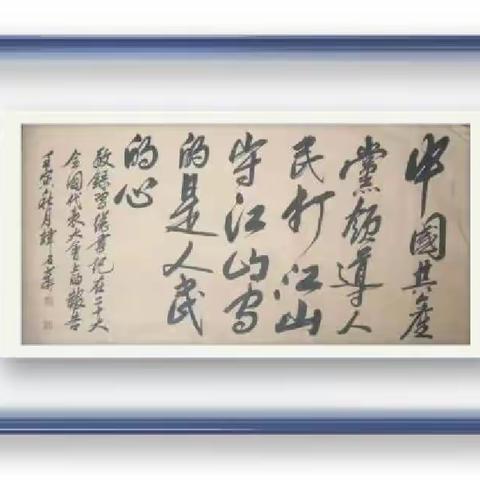 中國共產
黨領導人
民打江山
守江山守
的是人民
的心
敬録習總書記在二十大
全國代表大會上的報告
壬寅秋月